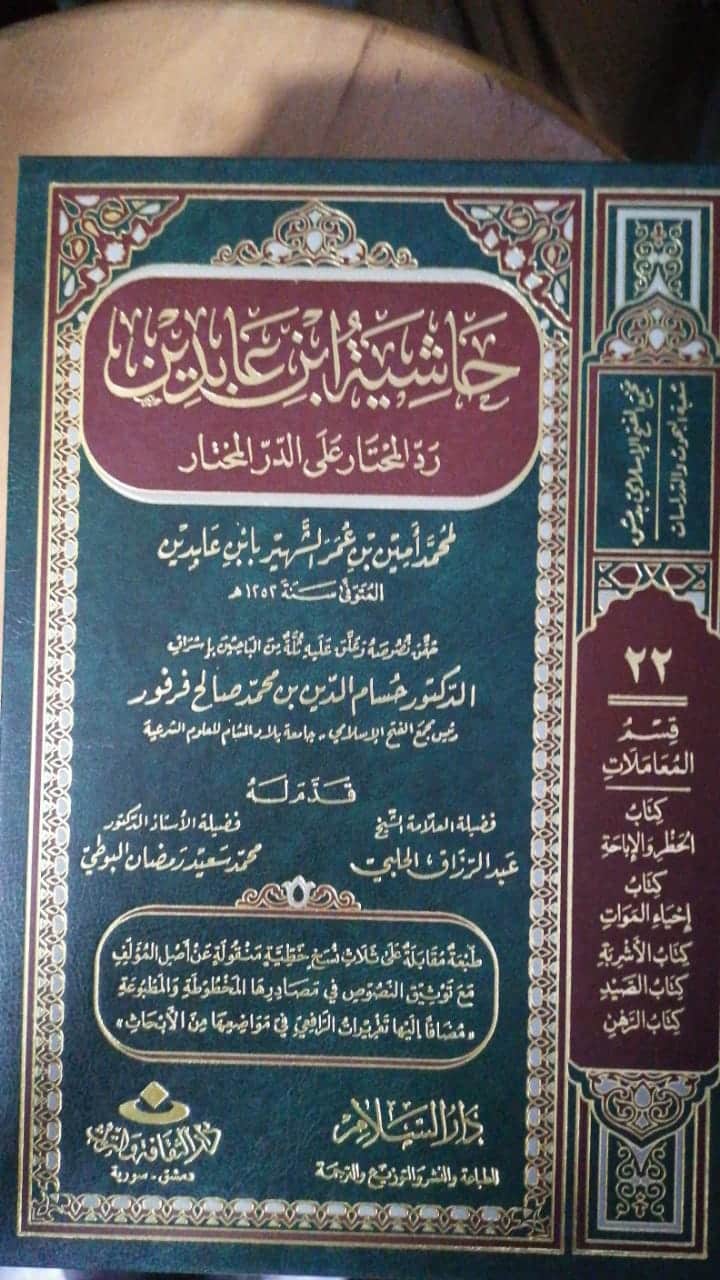 حَاشِيَةُ ابْنِ عَابِدِيْن
رَدّ المُحْتَار عَلَى الدّرّ المُخْتَار
لمُحَمَّد أَمِيْن بْن عُمَرَ الشَّهِيْر بِابْنِ عَابِدِيْن
المُتَوَفَّى سَنَةَ ١٢٥٢ هـ
حَقَّقَ نُصُوصَهُ وَعَلَّقَ عَلَيهِ ثُلَّةٌ مِنَ البَاحِثِينَ بِإِشْرَافِ
الدّكتور حُسَام الدّين بن محمّد صَالح فرفور
رئيس مجمّع الفتح الإسلامي - جامعة بلاد الشام للعلوم الشرعية
قَدَّمَ لَهُ
فضيلة العلامة الشيخ
عَبد الرّزاق الحلبي
فضيلة الأستاذ الدكتور
محمّد سَعِيْد رَمضَان البوطي
طَبْعَةٌ مُقَابَلَةٌ عَلَى ثَلَاثِ نُسَخٍ خَطِّيَّةٍ مَنْقُولَةٍ عَنْ أَصْلِ المُؤَلِّفِ
مَعَ تَوْثِيْقِ النُّصُوصِ فِي مَصَادِرِهَا المَخْطُوطَةِ وَالمَطْبُوعَةِ
«مُضَافًا إِلَيْهَا تَقْرِيْرَاتُ الرَّافِعِيّ فِي مَوَاضِعِهَا مِنَ الأَبْحَاثِ»
دَارُ السَّلَامِ
للطباعة والنشر والتوزيع والترجمة
دار الثقافة والتراث
دمشق - سورية
مجمع الفتح الإسلامي بدمشق
شعبة البحوث والدراسات
٢٢
قِسْمُ
المُعَامَلَاتِ
كِتَابُ
الحَظْرِ وَالإِبَاحَةِ
كِتَابُ
إِحْيَاءِ المَوَاتِ
كِتَابُ الأَشْرِبَةِ
كِتَابُ الصَّيْدِ
كِتَابُ الرَّهْنِ